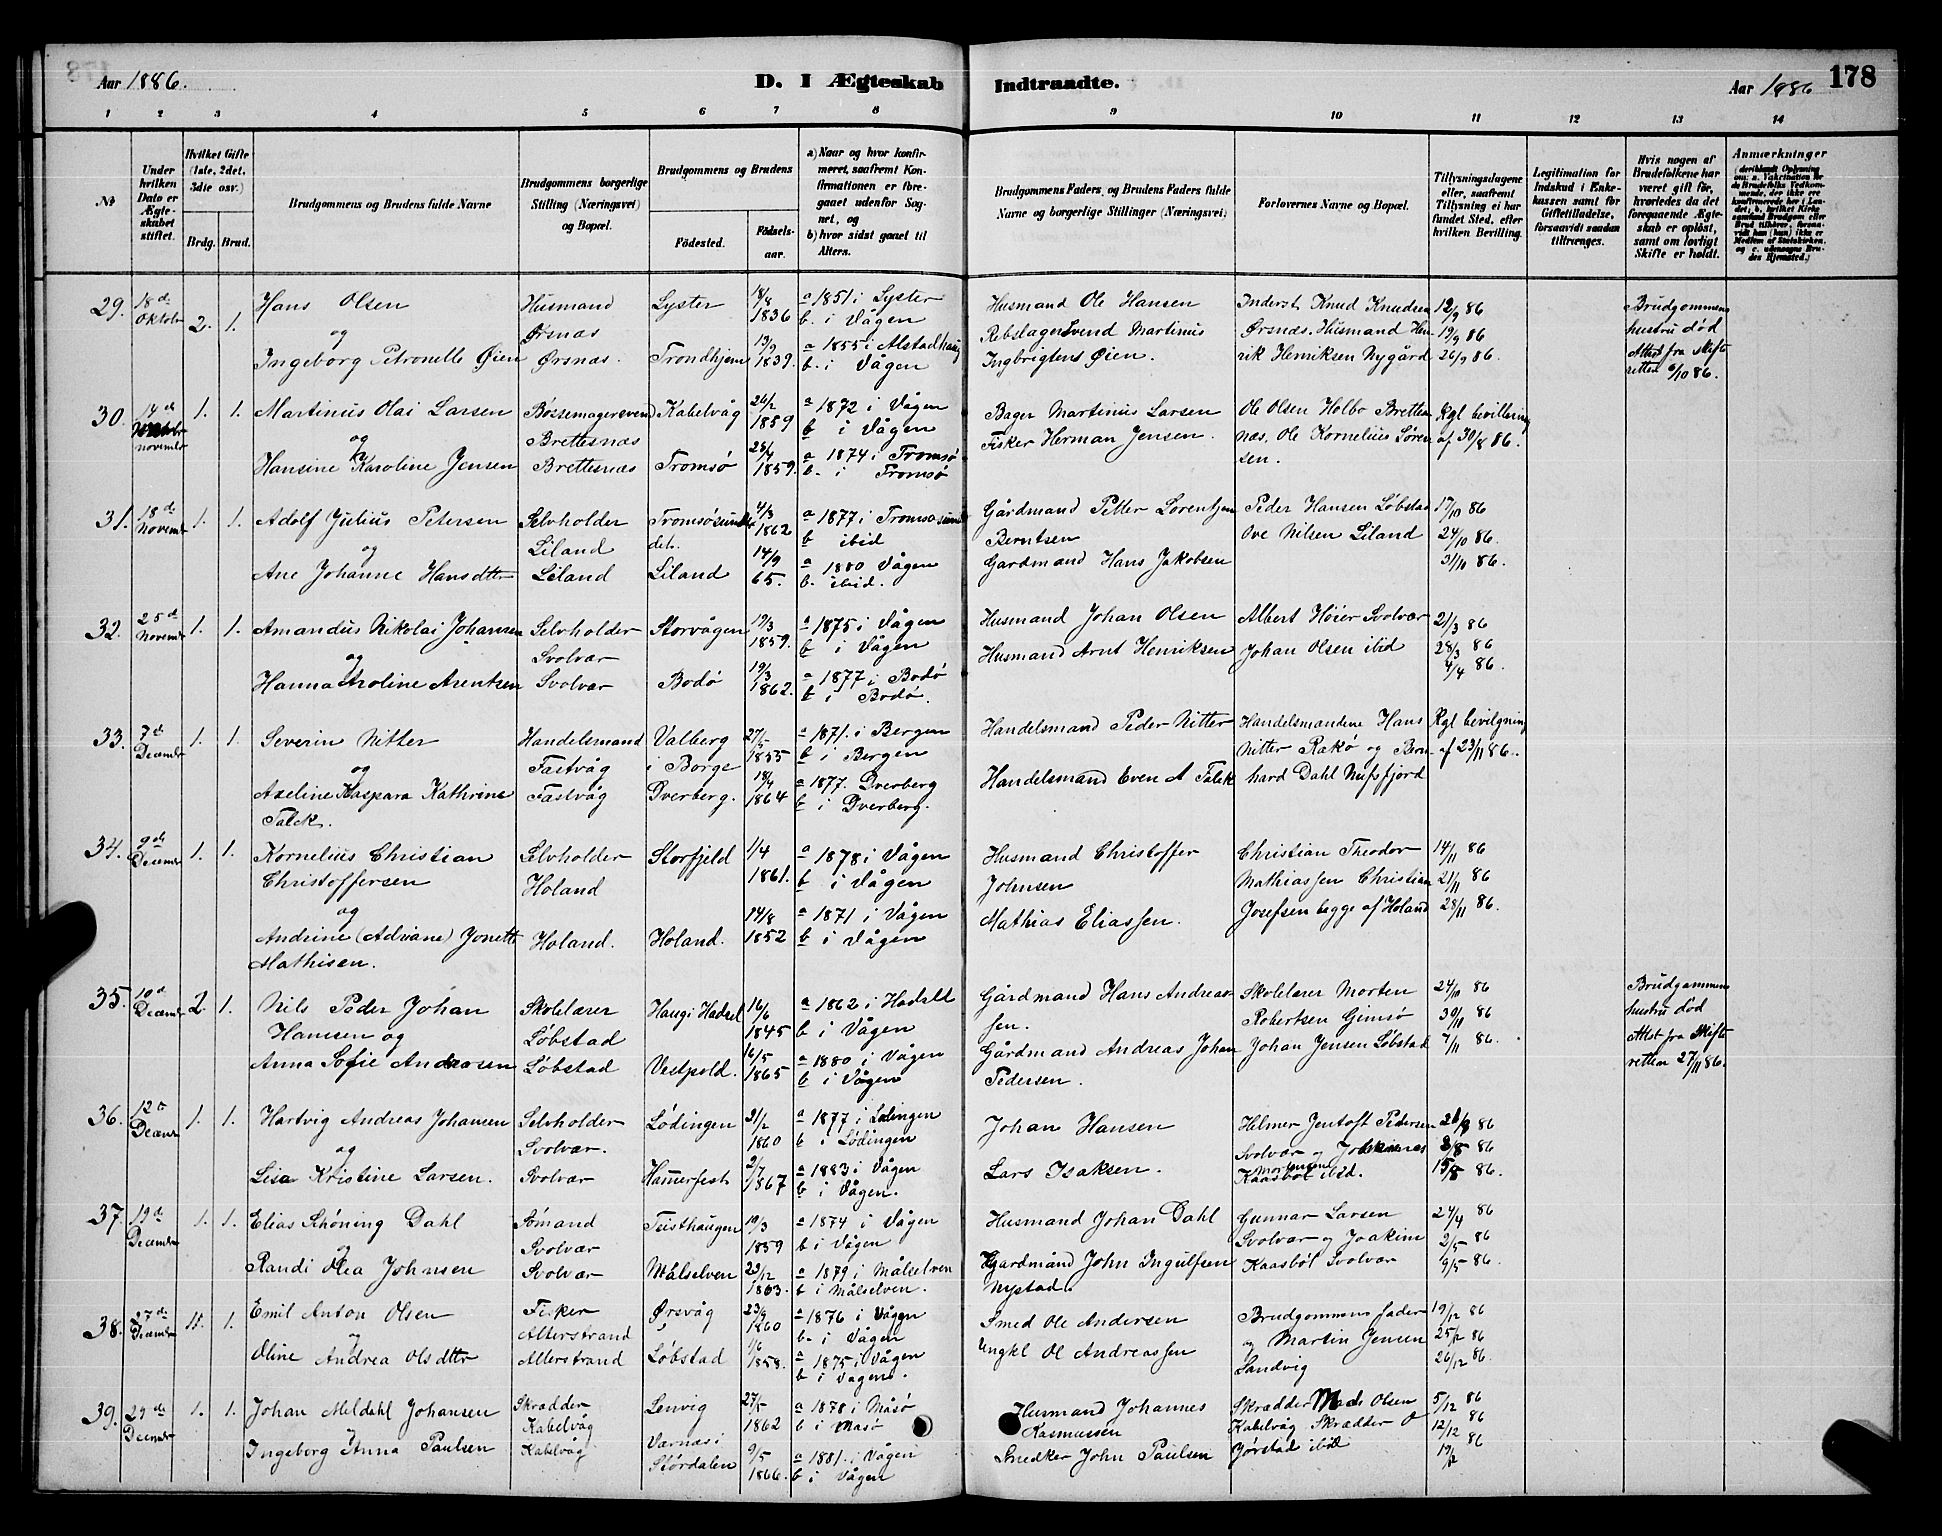 Aar 1886.
D. I Ægteskab Indtraadte.
Aar 1886 178
1 2 3 4 5 6 7 8 9 10 11 12 13 14
№
Under hvilken Dato er Ægteskabet stiftet.
Hvilket Gifte (1ste, 2det, 3die osv.)
Brdg. Brud.
Brudgommens og Brudens fulde Navne
Brudgommens borgerlige Stilling (Næringsvei) og Bopæl.
Brudgommens og Brudens
Fødested. Fødselsaar.
a) Naar og hvor konfirmeret, saafremt Konfirmationen er foregaaet udenfor Sognet, og
b) hvor sidst gaaet til Alters.
Brudgommens Faders og Brudens Faders fulde Navne og borgerlige Stillinger (Næringsvei)
Forlovernes Navne og Bopæl.
Tillysningsdagene eller, saafremt Tillysning ei har fundet Sted, efter hvilken Bevilling.
Legitimation for Indskud i Enkekassen samt for Giftetilladelse, forsaavidt saadan tiltrænges.
Hvis nogen af Brudefolkene har været gift før, hvorledes da det foregaaende Ægteskab er opløst, samt om lovligt Skifte er holdt.
Anmærkninger
29. 18de Oktobr 2. 1. Hans Olsen Husmand Lyster 18/8 1836 a 1851 i Lyster Husmand Ole Hansen Inderst Knud Knudsen 12/9 86 Brudgommens
og Ørsnæs b. i Vågen Rebslager Svend Martinus Ørsnæs. Husmand Hen- 19/9 86 hustru død
Ingeborg Petronelle Øien Ørsnæs. Trondhjem 13/9 1839. a 1855 i Alstadhaug Ingbrigtens Øien. rik Henriksen Nygård 26/9 86. Attest fra skifte
b. i Vågen retten 6/10 86.
30. 14de novembr 1. 1. Martinus Olai Larsen Bøssemagersvend Kabelvåg 26/2 1859 a 1872 i Vågen Bager Martinus Larsen Ole Olsen Holbo Brettes- Kgl bevilling
og Brettesnæs b i Vågen Fisker Herman Jensen. næs. Ole Kornelius Søren- af 30/8 86.
Hansine Karoline Jensen Brettesnæs Tromsø 25/4 1859. a 1874 i Tromsø sen.
b. i Tromsø
31. 18de Novembr 1. 1. Adolf Julius Petersen Selvholder Tromsøsundet 4/3 1862 a 1877 i Tromsøsund Gårdmand Petter Lorentzen Peder Hansen Løbstad 17/10 86
og Liland b ibid Berntsen Ove Nilsen Liland 24/10 86.
Ane Johanne Hansdtter Liland Liland 14/9 65. a 1880 Vågen Gårdmand Hans Jakobsen 31/10 86.
b. ibid.
32. 25de Novembr 1. 1. Amandus Nikolai Johansen Selvholder Storvågen 19/3 1859. a 1875 i Vågen Husmand Johan Olsen Albert Høier Svolvær 21/3 86
og Svolvær b i Vågen Husmand Arnt Henriksen Johan Olsen ibid 28/3 86
Hanna Aroline Arentsen Svolvær Bodø 19/3 1862. a 1877 i Bodø 4/4 86.
b i Bodø.
33. 7de Decembr 1. 1. Severin Nitter Handelsmand Valberg 27/5 1855 a 1871. i Bergen Handelsmand Peder Nitter Handelsmændene Hans Kgl bevilgning
og Fæstvåg i Borge b i Bergen Nitter Rakø og Bern- af 23/11 86.
Axeline Kaspara Kathrine Fæstvåg Dverberg. 18/4 1864 a 1877. Dverberg Handelsmand Even A Falck hard Dahl Nufsfjord
Falck. b i Dverberg.
34. 9de Decembr 1. 1. Kornelius Christian Selvholder Storfjeld 1/4 1861. a 1878 i Vågen Husmand Christoffer Christian Theodor 14/11 86
Christoffersen Holand b i Vågen Johnsen Mathiassen Christian 21/11 86
og Mathias Eliassen. Josefsen begge af Holand 28/11 86.
Andrine (Adriane) Jonette Holand. Holand. 14/8 1852 a 1871 i Vågen
Mathisen. b i Vågen
35. 10de Decembr 2. 1. Nils Peder Johan Skolelærer Haug i Hadsel 16/6 1845 a 1862 i Hadsel Gårdmand Hans Andreas- Skolelærer Morten 24/10 86 Brudgommens
Hansen og Løbstad b i Vågen sen. Robertsen Gimsø 30/10 86 hustru død
Anna Sofie Andreasen Løbstad Vestpold. 16/5 1865 a 1880 i Vågen Gårdmand Andreas Johan Johan Jensen Løbstad 7/11 86. Attest fra Skifte
b i Vågen Pedersen. retten 27/11 86.
36. 12te Decembr 1. 1. Hartvig Andreas Johansen Selvholder Lødingen 21/2 1860 a 1877 i Lødingen Johan Hansen Helmer Jentoft Pedersen 86
og Svolvær. b i Lødingen Svolvær og 8/8 86
Lisa Kristine Larsen. Svolvær Hammerfest 2/7 1867 a 1883 i Vågen Lars Isaksen. Mortensen Kaasbøl ibid. 15/8 86.
b i Vågen.
37. 19de Decembr 1. 1. Elias Schøning Dahl Sømand Teisthaugen 19/3 1859 a 1874 i Vågen Husmand Johan Dahl Gunnar Larsen 24/4 86
og Svolvær b i Vågen Svolvær og Joakim 2/5 86
Randi Olea Johnsen Svolvær Målselven 23/12 1863. a 1879 i Målselven Gårdmand John Ingulfsen Kaasbøl Svolvær 9/5 86.
b i Målselven. Nystad.
38. 27de Decembr 1. 1. Emil Anton Olsen Fisker Ørsvåg 23/9 1860 a 1876 i Vågen Smed Ole Andersen Brudgommens fader 19/12 86
og Alterstrand b. i Vågen og Martin Jensen 25/12 86
Oline Andrea Olsdtter Alterstrand Løbstad 1/6 1858. a 1875 i Vågen Ungkl Ol Andreassen Sandvig 26/12 86.
b i Vågen.
39. 29de Decembr 1. 1. Johan Meldahl Johansen Skrædder Lenvig 27/5 1862 a 1878 i Måsø Husmand Johannes Skrædder Mads Olsen 5/12 86
Kabelvåg b i Måsø Rasmussen Kabelvåg Skrædder O 12/12 86
Ingeborg Anna Paulsen Kabelvåg Værnæs i Størdalen 9/5 1866. a 1881. i Vågen Snedker John Paulsen Jørstad ibid 19/12 86
b i Vågen